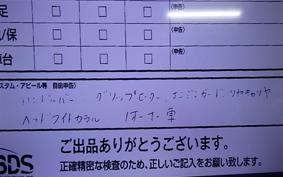 足 □ □ □ (申告)
/保 □ □ □ (申告)
車台 □ □ □ (申告)
スタム・アピール等 自由申告)
ハンドルバー グリップヒーター エンジンガード リヤキャリヤ
ヘッドライトカウル
ご出品ありがとうございます。
正確精密な検査のため、正しいご記入をお願い致します。
SDS